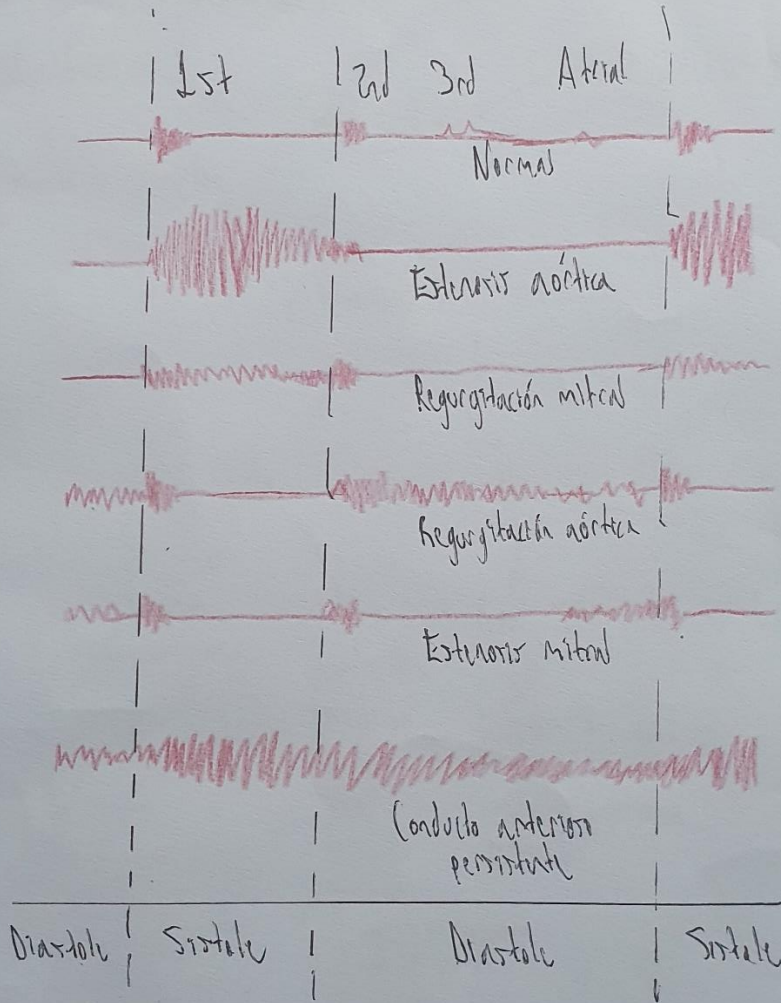 1st 2nd 3rd Aterial
Normal
Estenosis aórtica
Regurgitación mitral
Regurgitación aórtica
Estenosis mitral
Conducto anterioso
persistente
Diastole Sistole Diastole Sistole